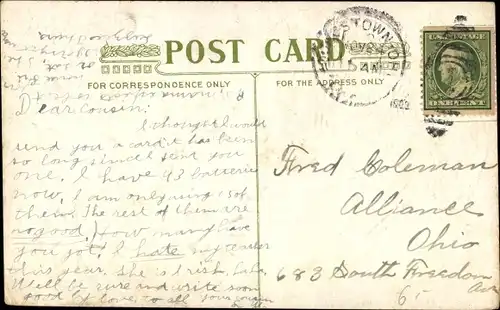 POST CARD
FOR CORRESPONDENCE ONLY
FOR THE ADDRESS ONLY
U.S. POSTAGE
ONE CENT
Dear Cousin:
I thought I would
send you a card it has been
so long since I sent you
one. I have 93 batteries
now, I am only using 15 of
them. The rest of them are
no good. How many have
you got? I hate my teacher
this year. She is Irish,
Well be sure and write soon
good by love, to all your cousin
Fred Coleman
Alliance
Ohio
683 South Freedom
Ave